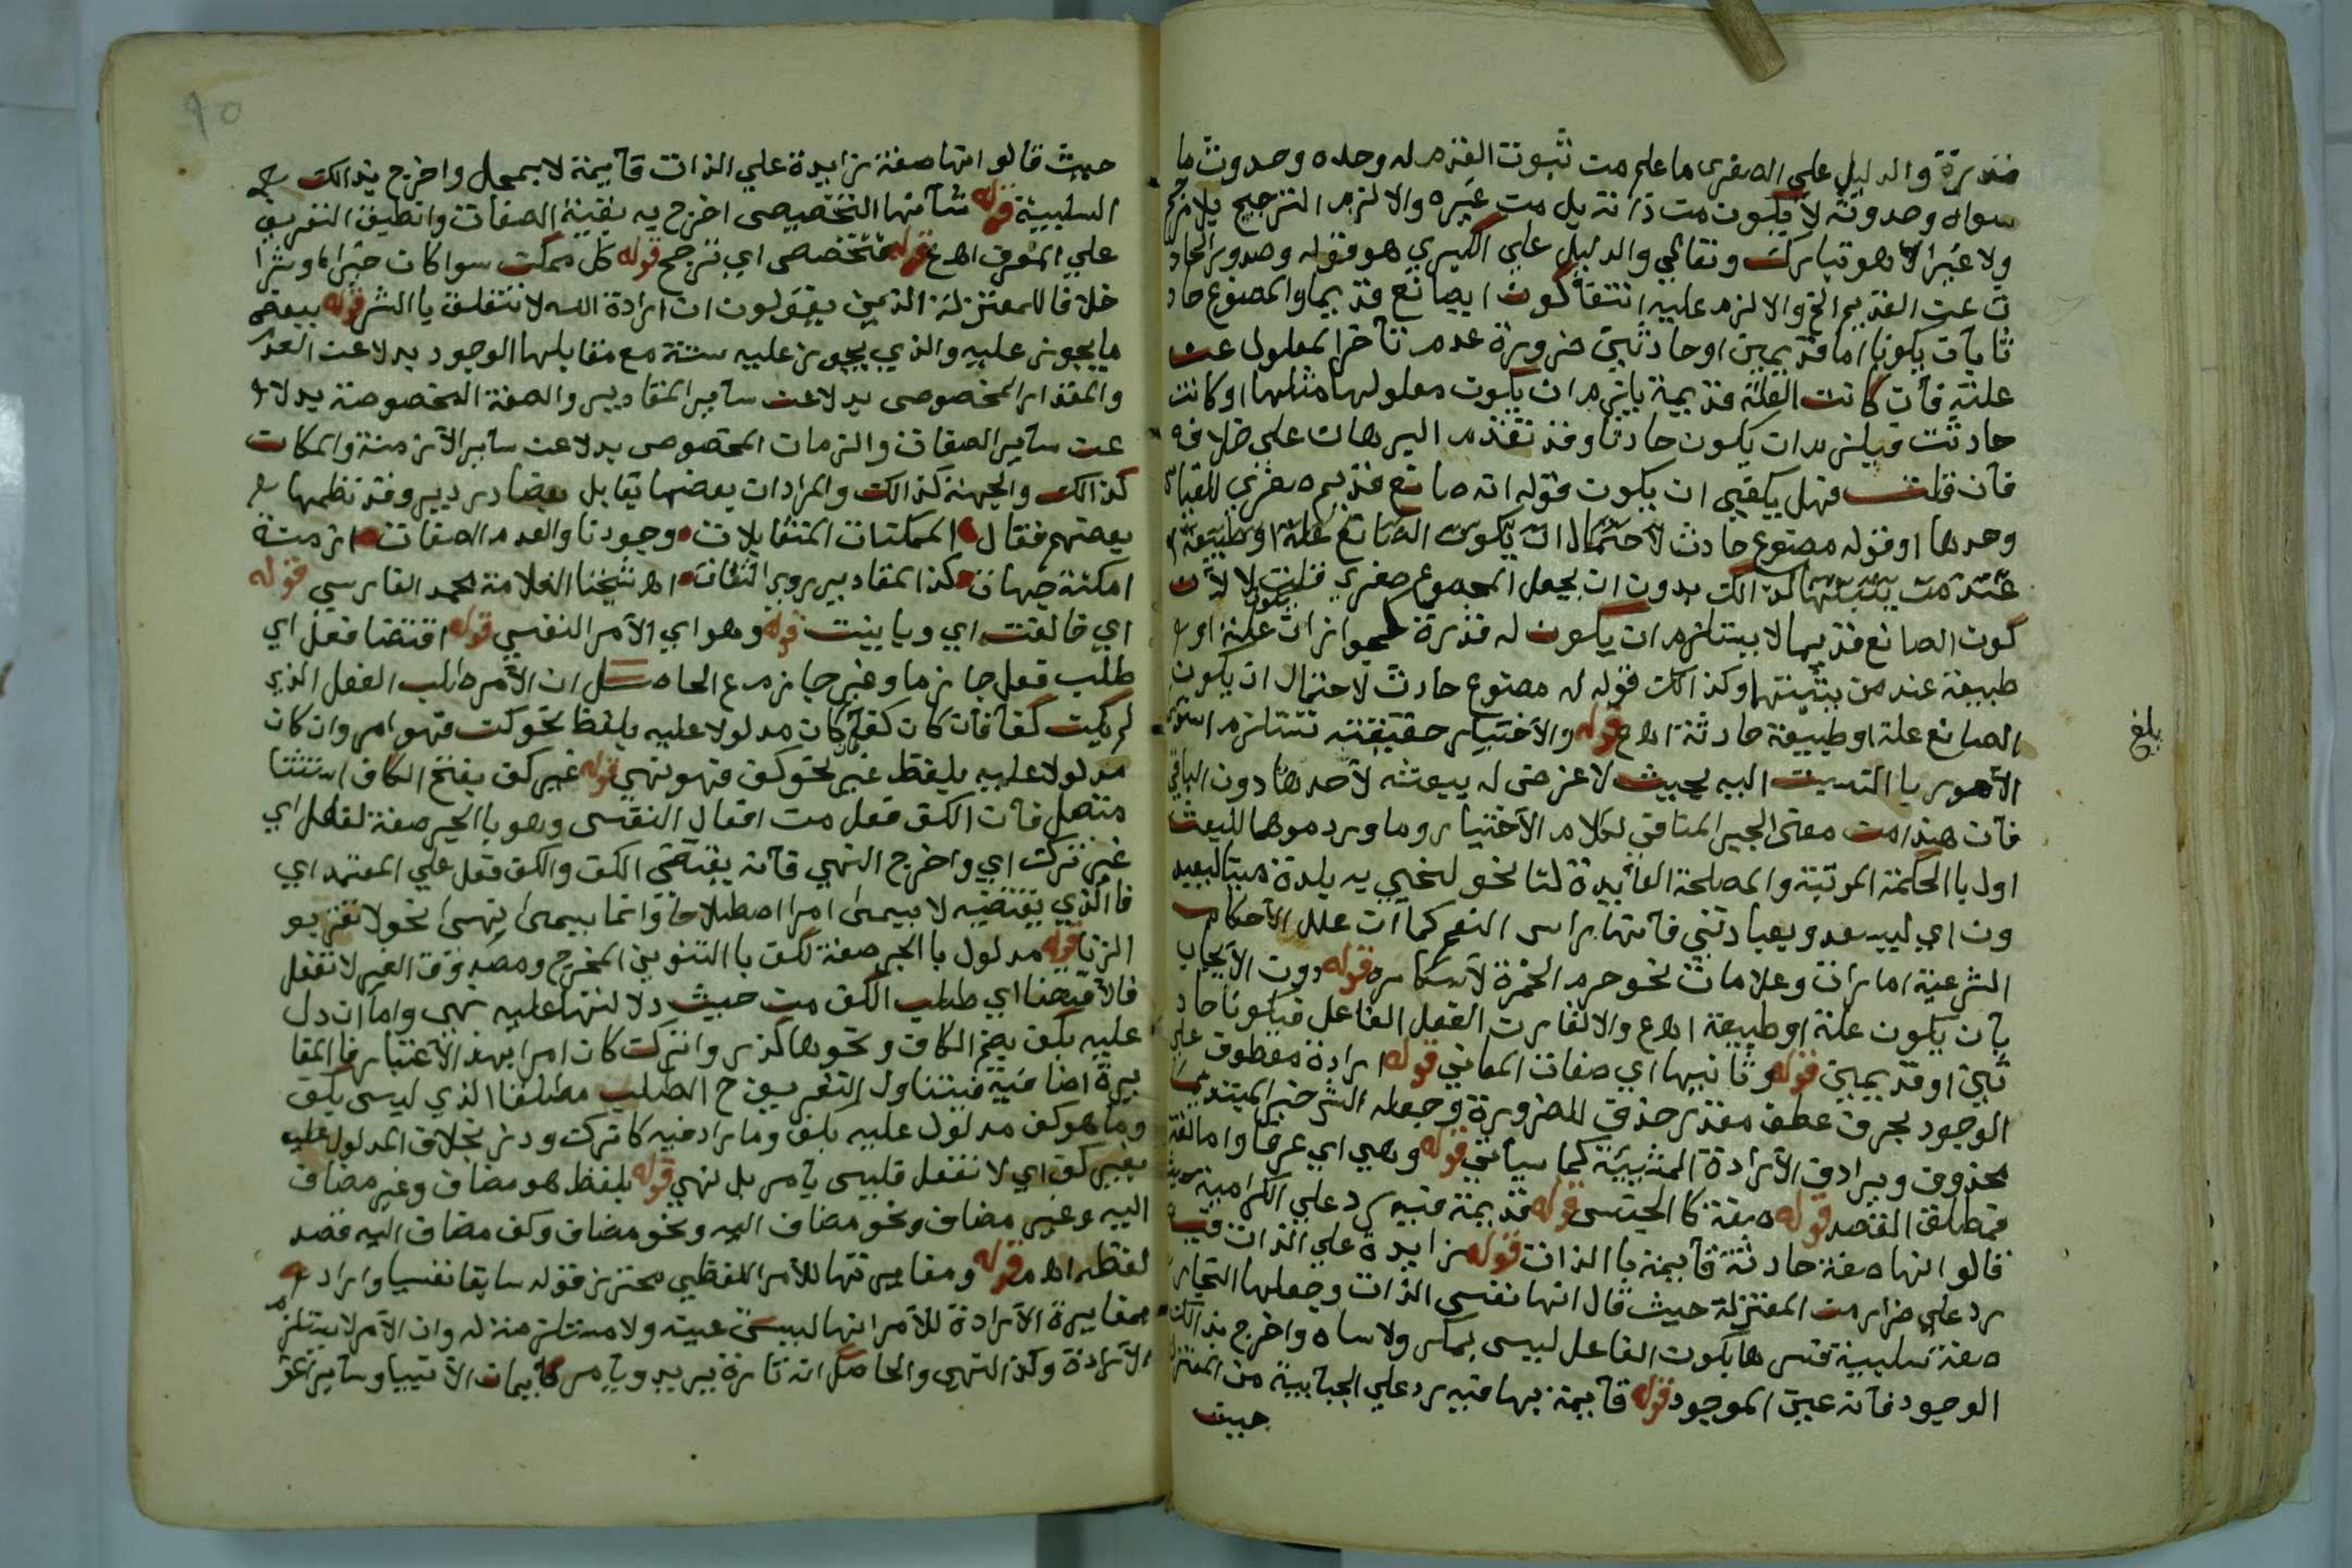 قدرة والدليل على الصغرى ما علم من ثبوت القدم له وحده وحدوث ما
سواه وحدوثه لا يكون من ذاته بل من غيره والا لزم الترجيح بلا مرجح
ولا غير الا هو تبارك وتعالى والدليل على الكبرى هو قوله وصدور الحاد
ث عن القديم الخ والا لزم عليه انتفا كون الصانع قديما والمصنوع حاد
ثا بان يكونا اما قديمين او حادثين ضرورة عدم تأخر المعلول عن
علته فأن كانت العلة قديمة يلزم ان يكون معلولها مثلها او كانت
حادثت فيلزم ان يكون حادثا وقد تقدم البرهان على خلافه
فان قلت فهل يكفي ان يكون قوله انه صانع قديم صغرى للقياس
وحدها او قوله مصنوع حادث لاحتمال ان يكون الصانع علة او طبيعة
عند من يثبتها لذالك بدون ان يجعل المجموع صغرى قلت لا لأن
كون الصانع قديما لا يستلزم ان يكون له قدرة لجواز ان يكون علة او
طبيعة عند من يثبتها وكذالك قوله له مصنوع حادث لاحتمال ان يكون
الصانع علة او طبيعة حادثة اهـ ع قوله والأختيار حقيقته تستلزم استوى
الأمور با النسبت اليه بحيث لا غرض له يبعثه لأحدها دون الباقي
فأن هذا من معنى الجبر المنافي لكلام الأختيار وما ورد موهما للبعث
اول با الحكمة المرتبة والمصلحة العائدة لنا نحو لنحيي به بلدة ميتا ليعبد
ون اي ليسعد وبعبادتي فأنها راس النعم كما أن علل الأحكام
الشرعية امارات وعلامات نحو حرم الخمرة لأسكاره قوله دون الأيجاب
بأن يكون علة او طبيعة اهـ ع والا لقارن الفعل الفاعل فيكونا حاد
ثين او قديمين قوله وثانيها اي صفات المعاني قوله ارادة معطوف على
الوجود بحرف عطف مقدر حذف للضرورة وجعله الشر خبر المبتدأ
محذوف ويرادف الأرادة المشيئة كما سيأتي قوله وهي اي عرفا واما لغة
فمطلق القصد قوله صفة كا الجنس قوله قديمة فيه رد على الكرامية حيث
قالو انها صفة حادثة قائمة با الذات قوله زايدة على الذات فيه
رد على ضرار من المعتزلة حيث قال انها نفس الذات وجعلها النجار
صفة سلبية فسرها بكون الفاعل ليس بمكره ولا ساه واخرج بذالك
الوجود فأنه عين الموجود قوله قائمة بها فيه رد على الجبائية من المعتزلة
حيث
بلغ
حيث قالو انها صفة زايدة علي الذات قآيمة لا بمحل واخرج بذالك
السلبية قوله شأنها التخصيص اخرج به بقية الصفات وانطبق التعريف
علي المعرف اهـ ع قوله فتخصص اي ترجح قوله كل ممكن سوا كان خيرا او شرا
خلافا للمعتزلة الذين يقولون ان ارادة الله لا تتعلق با الشر قوله ببعض
ما يجوز عليه والذي يجوز عليه ستة مع مقابلها الوجود بدلا عن العدم
والمقدار المخصوص بدلا عن ساير المقادير والصفة المخصوصة بدلا
عن ساير الصفات والزمان المخصوص بدلا عن ساير الأزمنة والمكان
كذالك والجهة كذالك والمرادات بعضها يقابل بعضا دردير وقد نظمها
بعضهم فقال الممكنات المتقابلات وجودنا والعدم الصفات ازمنة
امكنة جهات كذا المقادير روي الثقات اهـ شيخنا العلامة محمد الفارسي قوله
اي خالفت اي وباينت قوله وهو اي الأمر النفسي قوله اقتضا فعل اي
طلب فعل جازما وغير جازم ع الحاصل ان الأمر طلب الفعل الذي
لم يكن كفا فان كان كفا كان مدلولا عليه بلفظ نحو كف فهو امر وان كان
مدلولا عليه بلفظ غير نحو كف فهو نهي قوله غير كف بفتح الكاف استثنا
متصل فأن الكف فعل من افعال النفس وهو با الجر صفة لفعل اي
غير ترك اي واخرج النهي فأنه يقتضي الكف والكف فعل علي المعتمد اي
فا الذي يقتضيه لا يسمى امرا اصطلاحا وانما يسمى نهسا نحو لا تقربو
الزنا قوله مدلول با الجر صفة لكف با التنوين المخرج ومصدوق الغير لا تفعل
فالأقتضا اي طلب الكف من حيث دلالتها عليه نهي واما ان دل
عليه بكف بضم الكاف ونحوها كذر واترك كان امرا بهذا الأعتبار فا المغا
يرة اضافية فيتناول التعريف ح الطلب مطلقا الذي ليس بكف
وما هو كف مدلول عليه بلف وما رادفيه كاترك وذر بخلاف المدلول عليه
بغير كف اي لا تفعل فليس بأمر بل نهي قوله بلفظ هو مضاف وغير مضاف
اليه وغير مضاف ونحو مضاف اليه ونحو مضاف وكف مضاف اليه قصد
لفظه اهـ م قوله ومغايرتها للأمر اللفظي محترز قوله سابقا نفسيا واراد
بمغايرة الأرادة للأمر انها ليست عينه ولا مستلزمة له وان الأمر لا يستلزم
الأرادة وكذا النهي والحاصل انه تارة يريد ويأمر كأيمان الأنبيا وساير